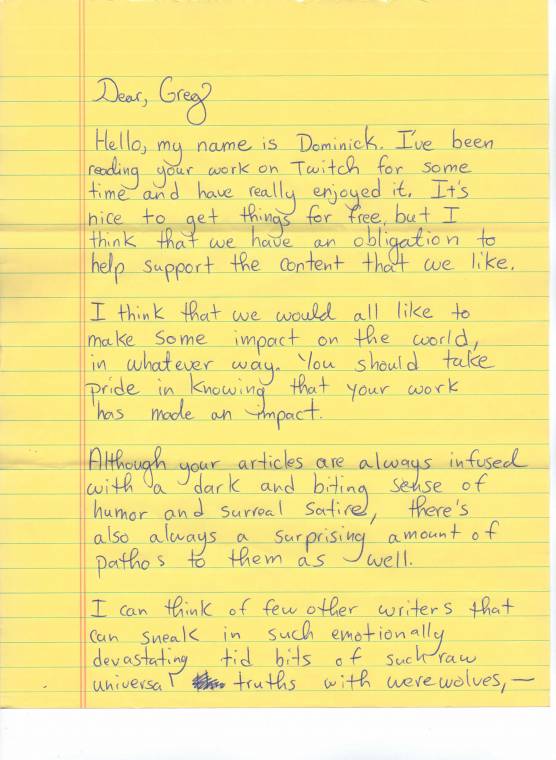 Dear, Greg
Hello, my name is Dominick. I've been
reading your work on Twitch for some
time and have really enjoyed it. It's
nice to get things for free, but I
think that we have an obligation to
help support the content that we like.
I think that we would all like to
make some impact on the world,
in whatever way. You should take
pride in knowing that your work
has made an impact.
Although your articles are always infused
with a dark and biting sense of
humor and surreal satire, there's
also always a surprising amount of
pathos to them as well.
I can think of few other writers that
can sneak in such emotionally
devastating tid bits of such raw
universal truths with werewolves, —